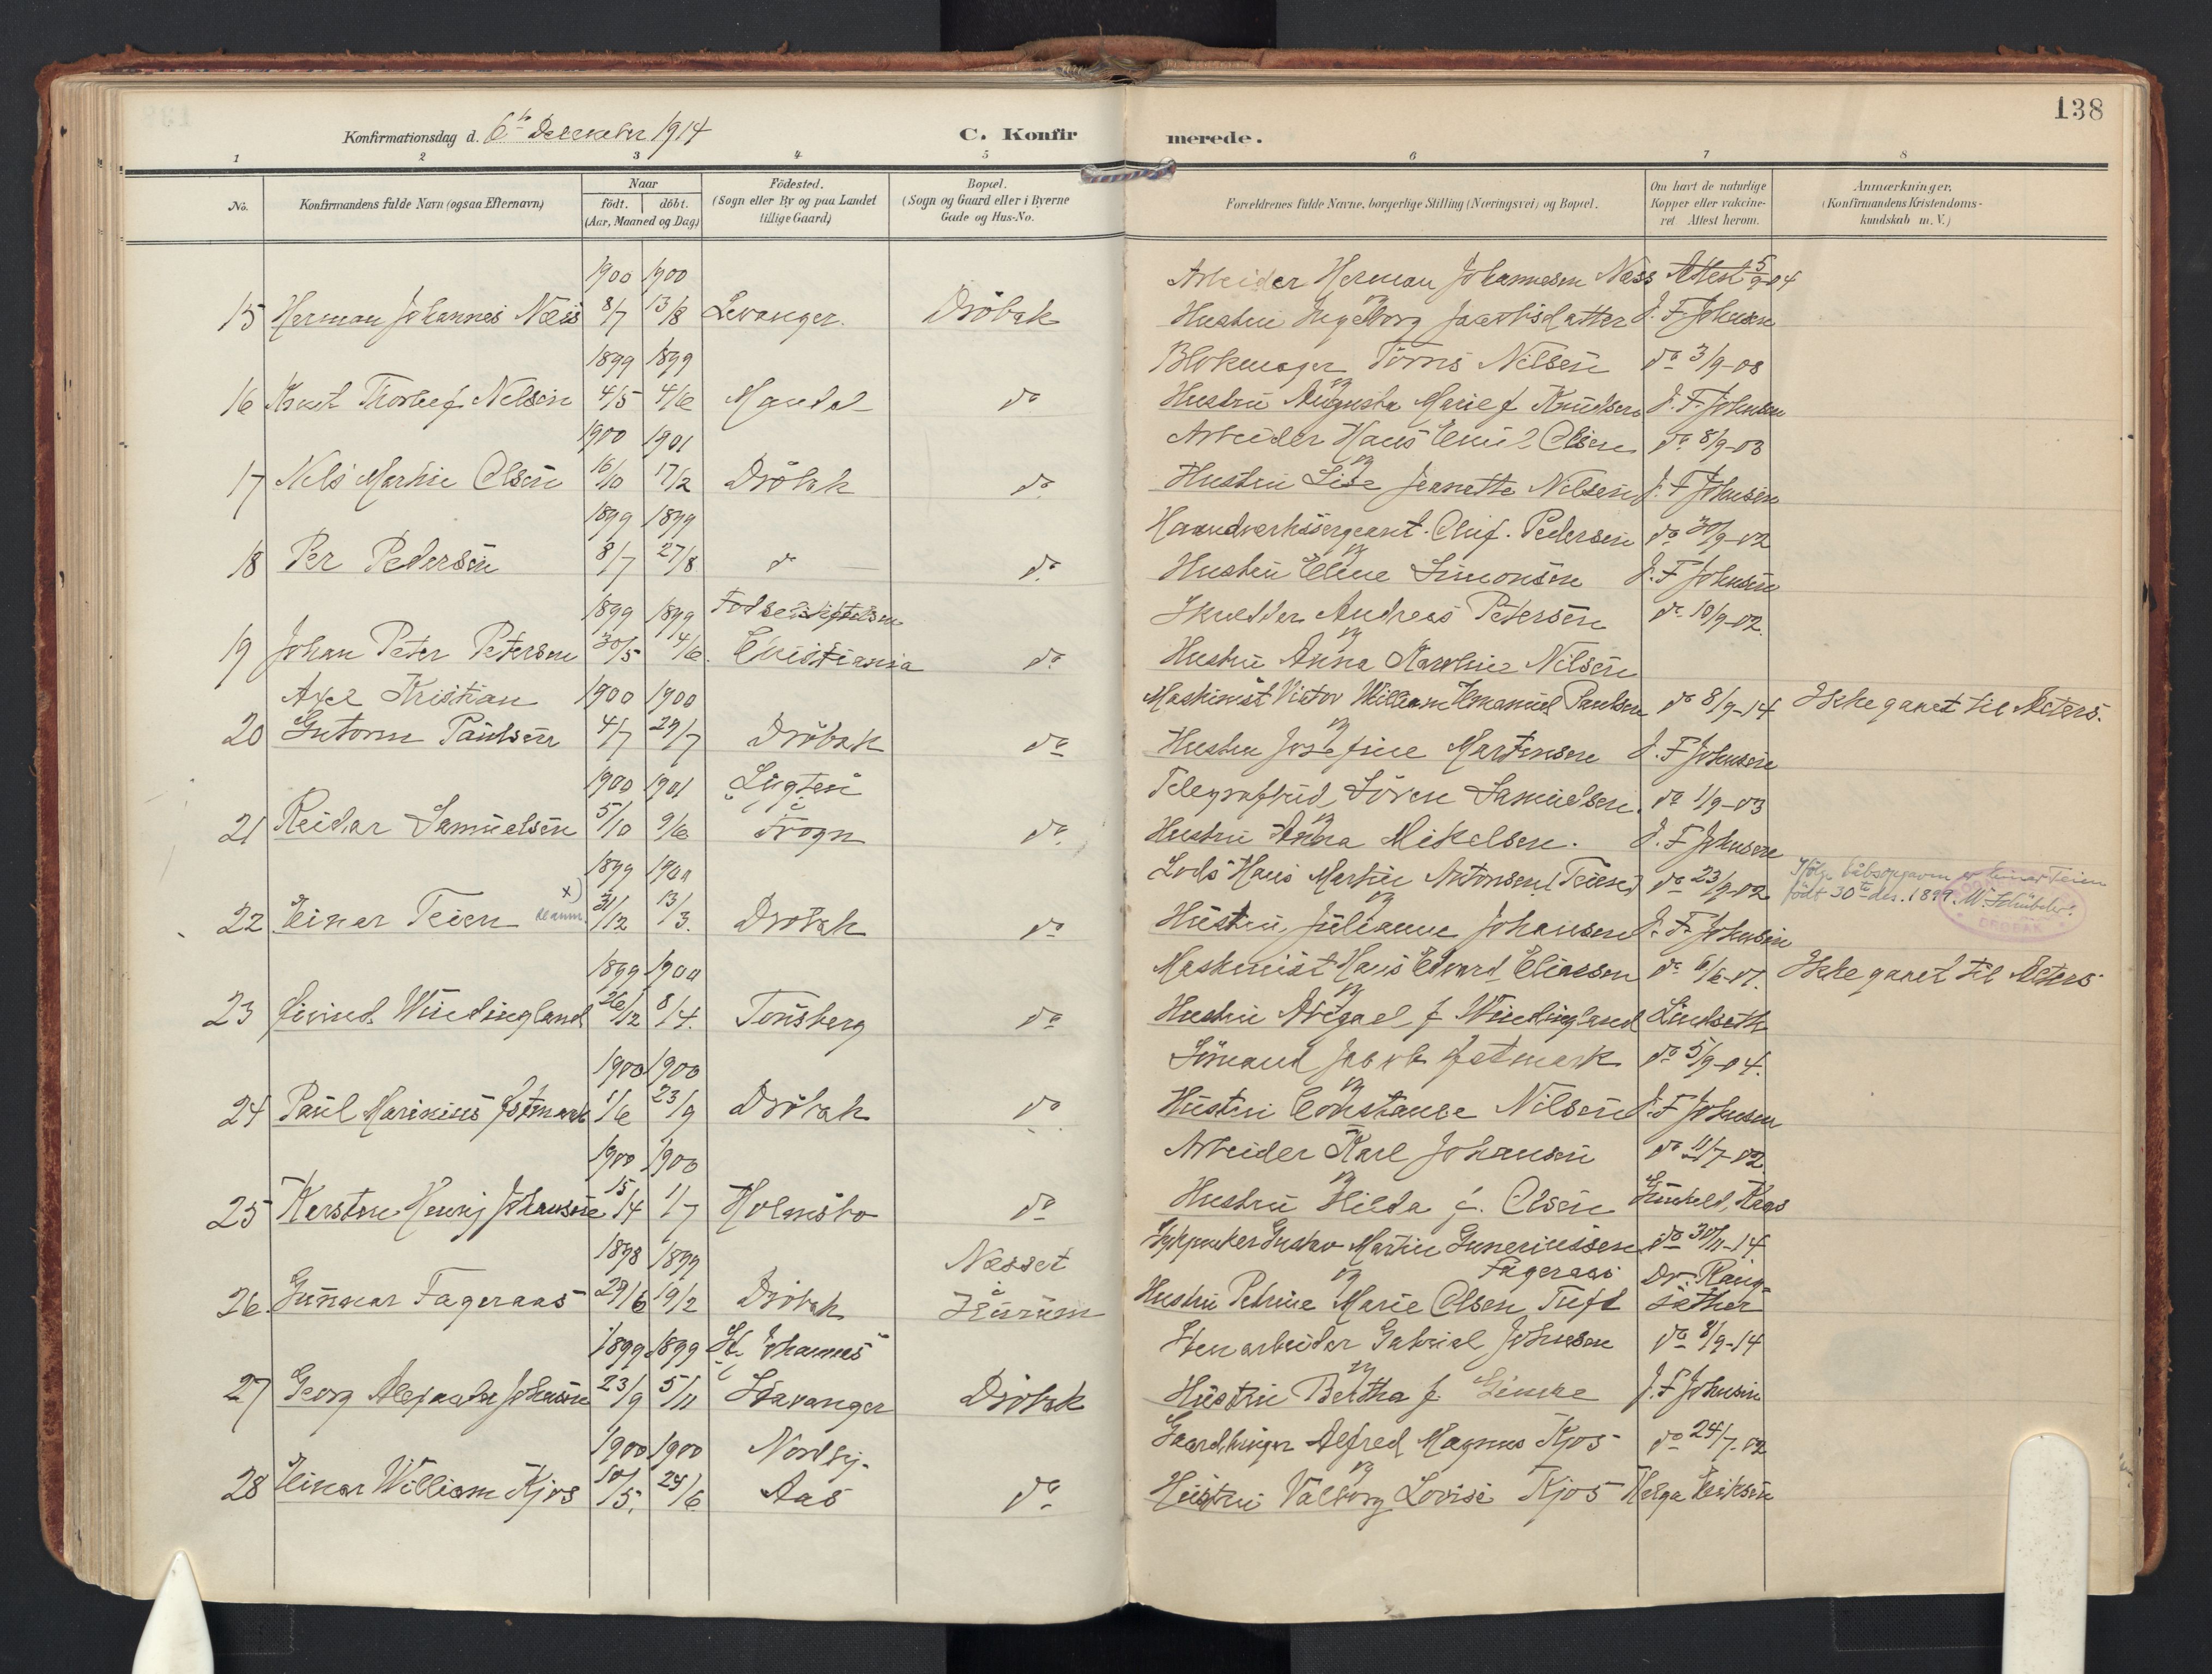 138
Konfirmationsdag d. 6te December 1914
C. Konfirmerede.
1 2 3 4 5 6 7 8
No.
Konfirmandens fulde Navn (ogsaa Efternavn)
Naar
födt. döbt.
(Aar, Maaned og Dag)
Födested.
(Sogn eller By og paa Landet tillige Gaard)
Bopæl.
(Sogn og Gaard eller i Byerne Gade og Hus-No.
Forældrenes fulde Navne, borgerlige Stilling (Næringsvei) og Bopæl.
Om havt de naturlige Kopper eller vakcineret Attest herom.
Anmærkninger,
(Konfirmandens Kristendomskundskab m. V.)
1900 1900 Arbeider Herman Johannesen Næss Attest 5/9 04
15 Herman Johannes Næss 8/7 13/8 Levanger. Dröbak Hustru Ingeborg Jacobsdatter J. F. Johnsen
1899 1899 Blokmager Törris Nilsen do 3/9-03
16 Knut Thorleif Nilsen 4/5 4/6 Mandal do Hustru Augusta Marie f Knudsen J. F. Johnsen
1900 1901 Arbeider Hans Emil Olsen do 8/9-03
17 Nils Martin Olsen 16/10 17/2 Dröbak do Hustru Lise Jeanette Nilsen J. F Johnsen
1899 1899 Haandverkssergeant Oluf Pedersen do 30/9-02
18 Per Pedersen 8/7 27/8 do do Hustru Eline Simonsen J. F Johnsen
1899 1899 Skredder Andreas Petersen do 10/9-02.
19 Johan Peter Petersen 30/5 4/6. Christiania do Hustru Anna Karoline Nilsen
Axel Kristian 1900 1900 Maskinist Victor William Emanuel Paulsen do 8/9-14 Ikke gaaet til Alters.
20 Gutorm Paulsen 4/7 29/7 Dröbak do Hustru Josefine Martinsen J. F Johnsen
1900 1901 Telegrafbud Sören Samuelsen do 1/9-03
21 Reidar Samuelsen 5/10 9/6 Frogn do Hustru Anna Mikelsen. J. F Johnsen
1899 1900 Lods Hans Martin Antonsen (Teien) do 23/9-02 Ifölge er Einar Teien
x)
født 30te des. 1899.
22 Einar Teien 31/12 13/3. Dröbak do Hustru Julianne Johansen J. F. Johnsen
1899 1900 Maskinist Hans Edvard Eliassen do 6/6-07. Ikke gaaet til Alters
23 Eivind Windingland 26/12 8/4. Tönsberg do Hustru Abigael f Windingland Lindseth
1900 1900 Sömand Jacob Østmark do 5/9-04.
24 Paul Marinius Østmark 1/6 23/9 Dröbak do Hustru Constance Nilsen J. F Johnsen
1900 1900 Arbeider Karl Johansen do 11/7-02.
25 Karsten Henry Johansen 15/4 1/7 Holmsbo do Hustru Hilda f. Olsen
1898 1899 Næsset Gustav Martin Guneriussen do 30/11-14
Fageraas
26. Gunnar Fageraas 29/6 19/2 Dröbak i Hurum Hustru Petrine Marie Olsen Tuft Dr. Rangsether
1899 1899 St. Johannes Stenarbeider Gabriel Johnsen do 8/9-14
27 Georg Alexander Johnsen 23/9 5/11 i Stavanger Dröbak Hustru Bertha f. J. F Johnsen
1900 1900 Nordby Gaardbruger Alfred Magnus Kjos do 24/7-02
28 Einar William Kjos 10/5. 24/6 Aas do Hustru Valborg Lovise Kjos Helga Eriksen